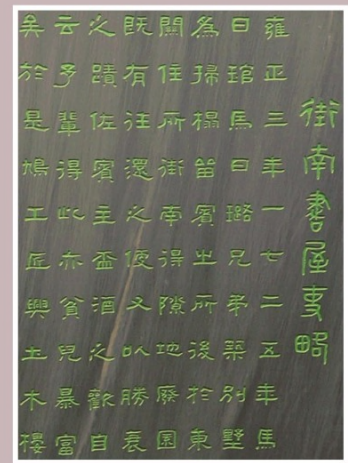 街南書屋事略
雍正三年一七二五年馬
曰琯馬曰璐兄弟築別墅
為掃榻留賓之所後於東
關住所街南得隙地廢園
既有往還之便又以勝衰
之蹟佐賓主盃酒之歡自
云予輩得此亦貧兒暴富
矣於是鳩工匠興土木樓